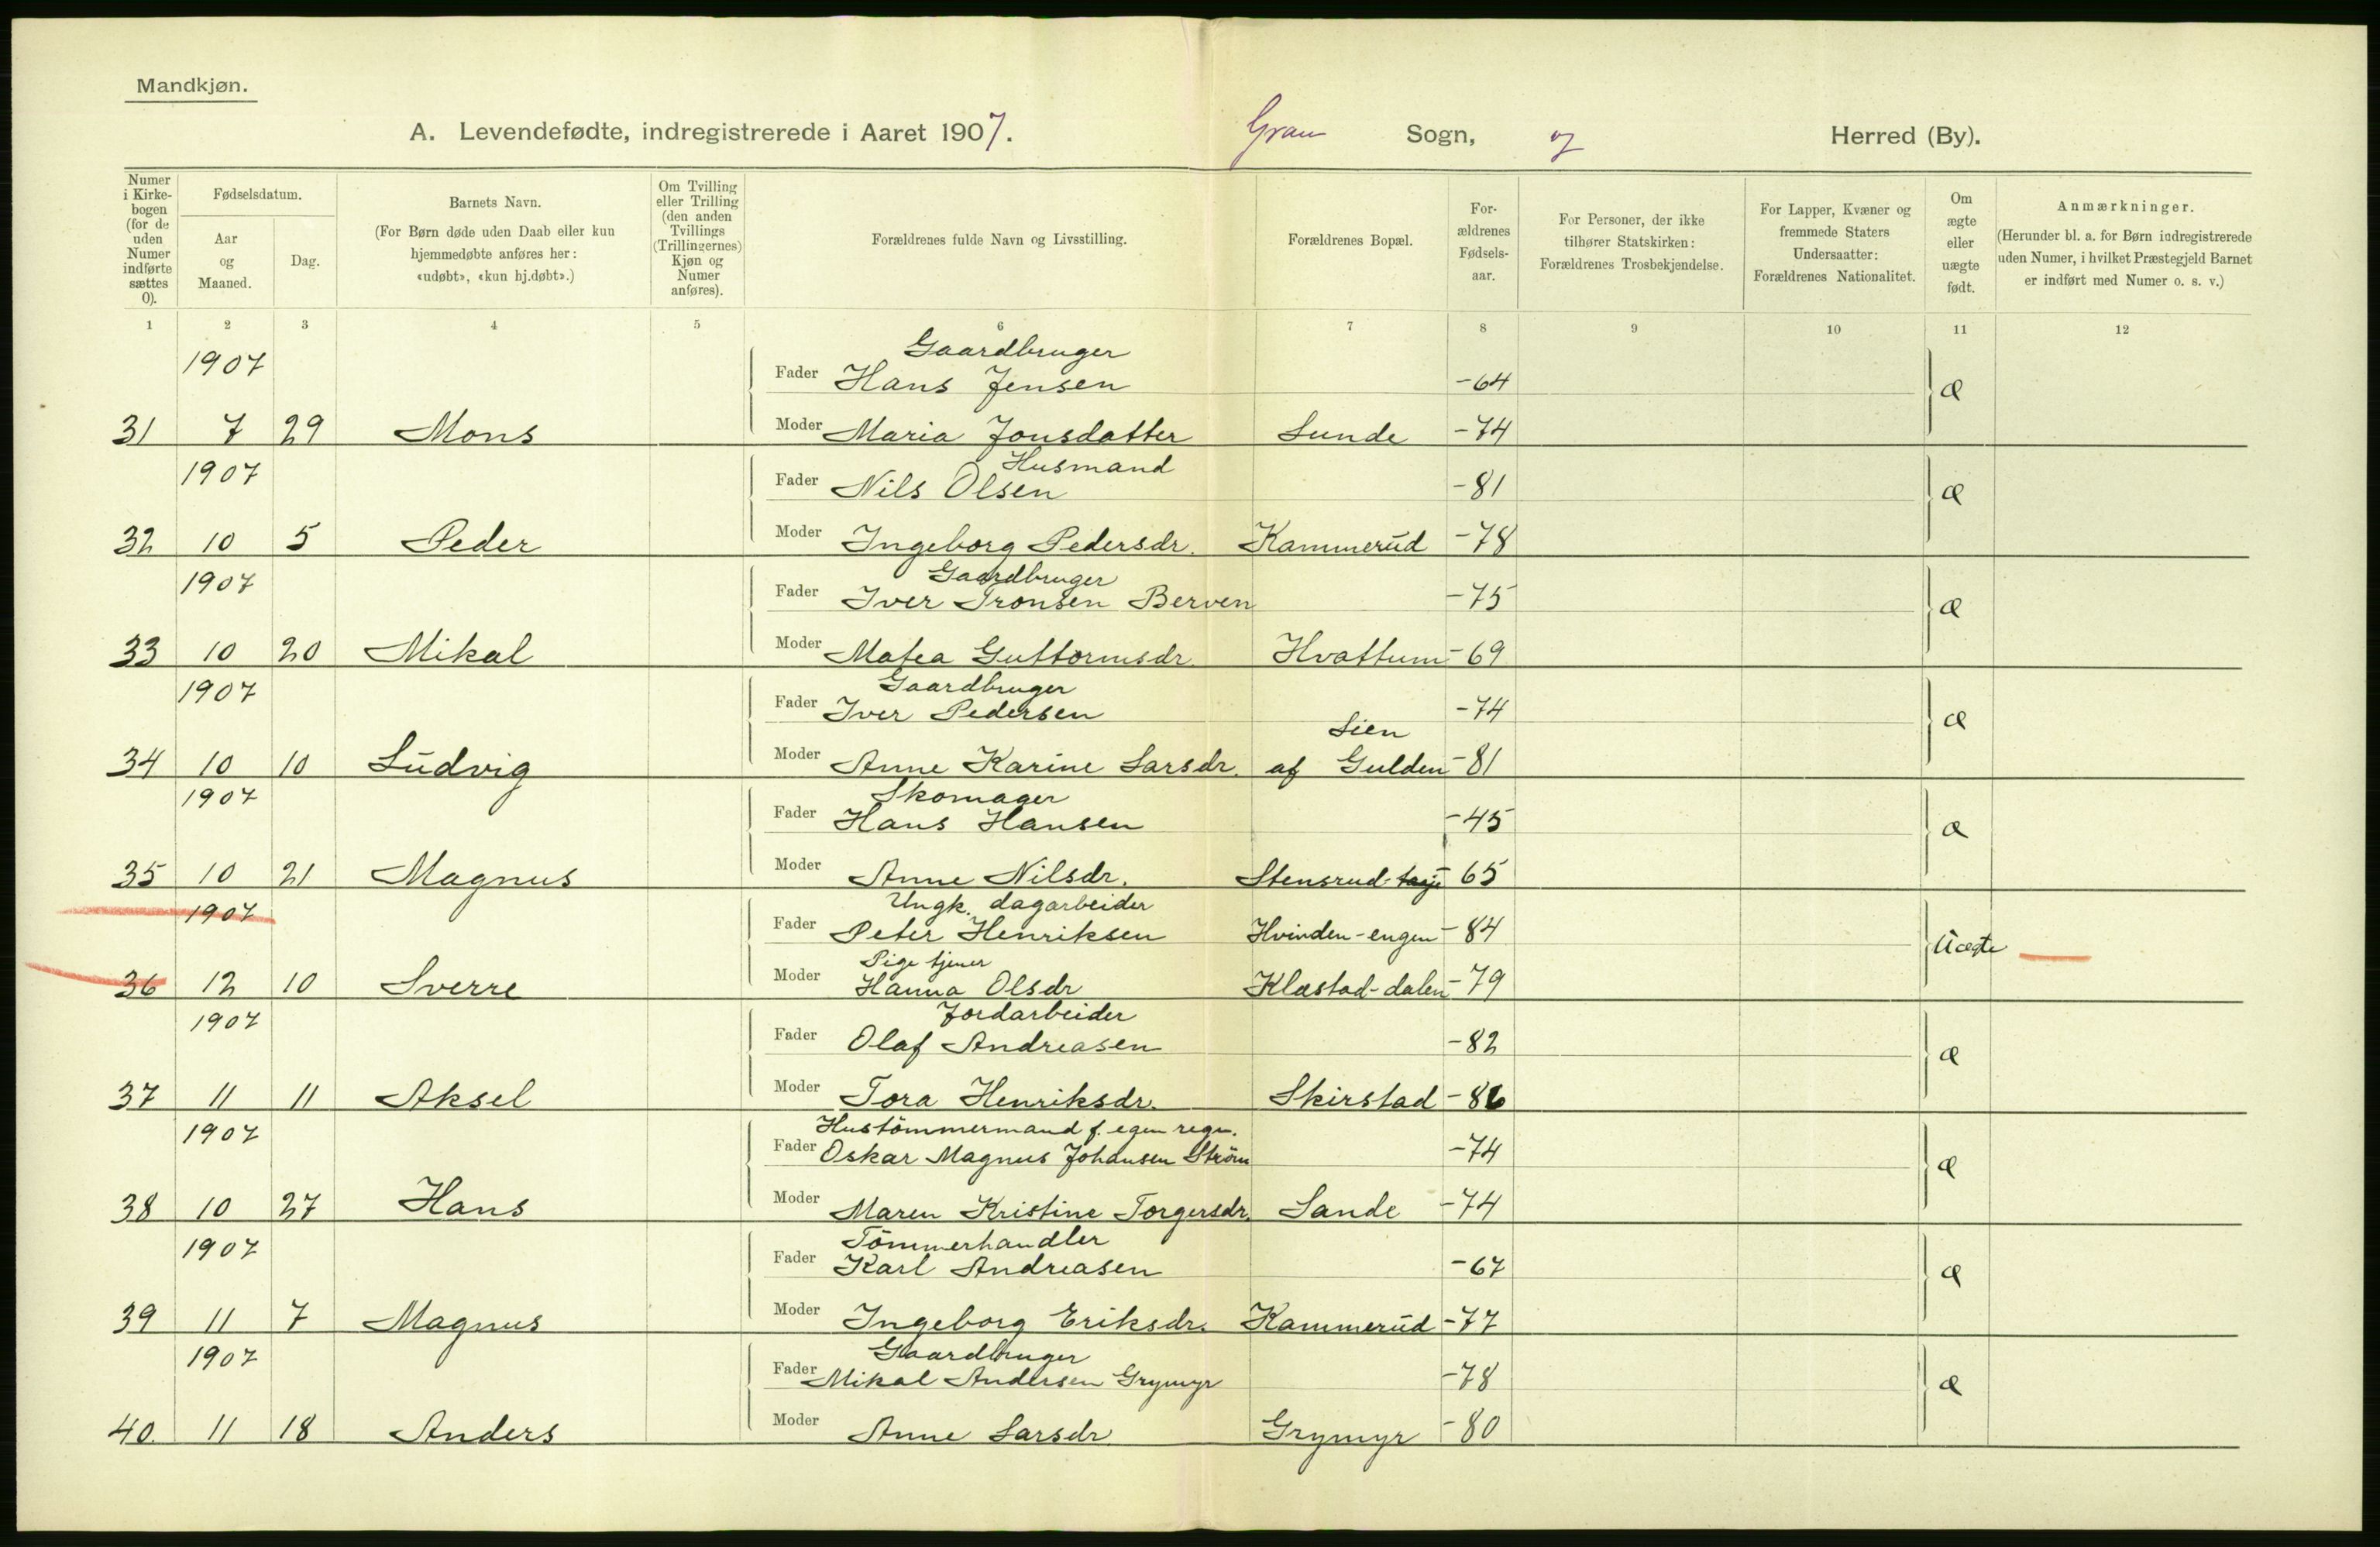 Mandkjøn.
A. Levendefødte, indregistrerede i Aaret 1907. Gran Sogn, og Herred (By).
Numer i Kirke-bogen (for de uden Numer indførte sættes 0).
Fødselsdatum.
Aar og Maaned.
Dag.
Barnets Navn.
(For Børn døde uden Daab eller kun hjemmedøbte anføres her: «udøbt», «kun hj.døbt».)
Om Tvilling eller Trilling (den anden Tvillings (Trillingernes) Kjøn og Numer anføres).
Forældrenes fulde Navn og Livsstilling.
Forældrenes Bopæl.
For-ældrenes Fødsels-aar.
For Personer, der ikke tilhører Statskirken: Forældrenes Trosbekjendelse.
For Lapper, Kvæner og fremmede Staters Undersaatter: Forældrenes Nationalitet.
Om ægte eller uægte født.
Anmærkninger.
(Herunder bl. a. for Børn indregistrerede uden Numer, i hvilket Præstegjeld Barnet er indført med Numer o. s. v.)
1 2 3 4 5 6 7 8 9 10 11 12
Gaardbruger
1907 Fader Hans Jensen -64 æ
31 7 29 Mons Moder Maria Jonsdatter Lunde -74
Husmand
1907 Fader Nils Olsen -81 æ
32 10 5 Peder Moder Ingeborg Pedersdr. Kammerud -78
Gaardbruger
1907 Fader Iver Tronsen Berven -75 æ
33 10 20 Mikal Moder Matea Guttormsdr. Hvattum -69
Gaardbruger
1907 Fader Iver Pedersen -74 æ
Lien
34 10 10 Ludvig Moder Anne Karine Larsdr. af Gulden -81
Skomager
1907 Fader Hans Hansen -45 æ
35 10 21 Magnus Moder Anne Nilsdr. Stensrud- -65
Ungk. dagarbeider
1907 Fader Peter Henriksen Hvinden-engen -84 Uægte
Pige tjener
36 12 10 Sverre Moder Hanna Olsdr Klæstad-dalen -79
Jordarbeider
1907 Fader Olaf Andreasen -82 æ
37 11 11 Aksel Moder Tora Henriksdr. Skirstad -86
Hustömmermand f. egen regn.
1907 Fader Oskar Magnus Johansen Ström -74 æ
38 10 27 Hans Moder Maren Kristine Torgersdr. Sande -74
Tömmerhandler
1907 Fader Karl Andreasen -67 æ
39 11 7 Magnus Moder Ingeborg Eriksdr. Kammerud -77
Gaardbruger
1907 Fader Mikal Andersen Grymyr -78 æ
40. 11 18 Anders Moder Anne Larsdr Grymyr -80